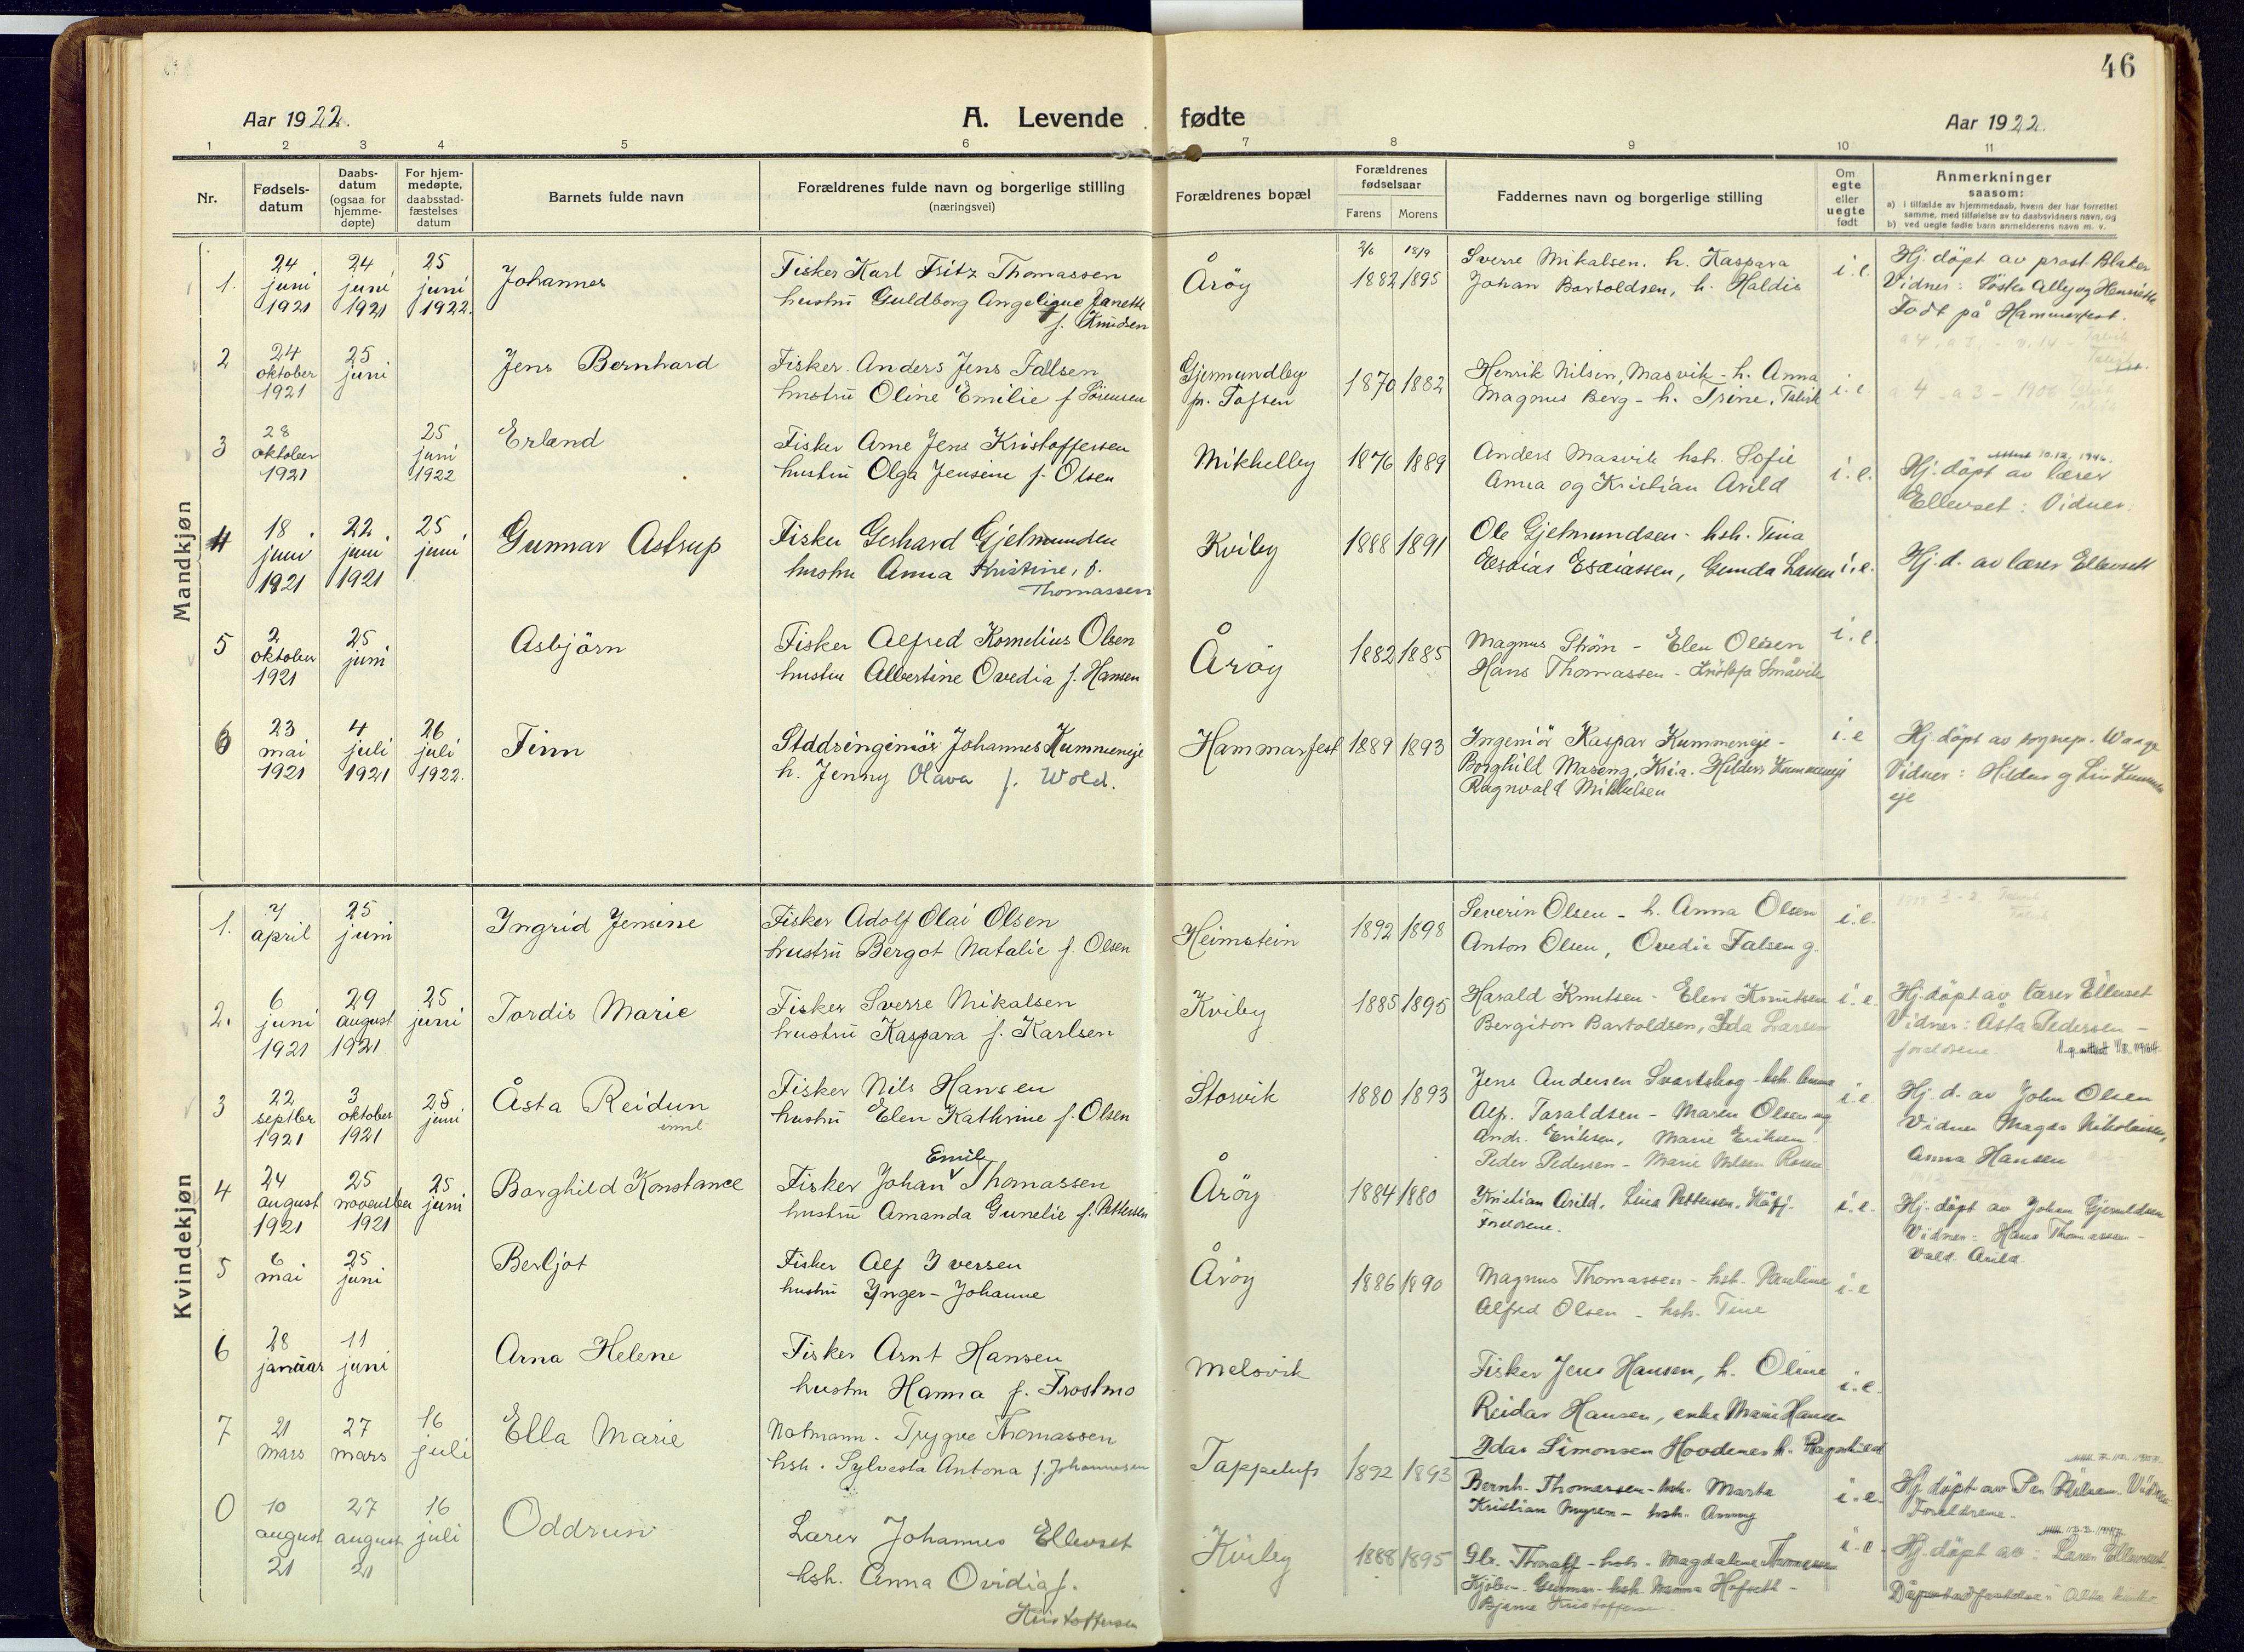 46
Aar 1922.
A. Levende fødte
Aar 1922.
1 2 3 4 5 6 7 8 9 10 11
Nr.
Fødsels-
datum
Daabs-
datum
(ogsaa for
hjemme-
døpte)
For hjem-
medøpte,
daabsstad-
fæstelses
datum
Barnets fulde navn
Forældrenes fulde navn og borgerlige stilling
(næringsvei)
Forældrenes bopæl
Forældrenes
fødselsaar
Farens Morens
Faddernes navn og borgerlige stilling
Om
egte
eller
uegte
født
Anmerkninger
saasom:
a) i tilfælde av hjemmedaab, hvem der har forrettet
samme, med tilføielse av to daabsvidners navn, og
b) ved uegte fødte barn anmelderens navn m. v.
Mandkjøn
1.
24
juni
1921
24
juni
1921
25
juni
1922.
Johannes
Fisker Karl Fritz Thomassen
hustru Guldborg Angelique Janette
f. Knudsen
Åröy
2/6 18/9
1882 1895
Sverre Mikalsen. h. Kaspara
Johan Bartoldsen, h. Haldis
i. e.
Hj. döpt av prost Blaker
Vidner: Söster Ally og Henriette
Födt på Hammerfest.
2
24
oktober
1921
25
juni
Jens Bernhard
Fisker Anders Jens Fallsen
hustru Oline Emilie f Sörensen
Gjermundby
p. Tofsen
1870 1882
Henrik Nilsen, Masvik - h. Anna
Magnus Berg - h. Trine, Talvik
i. e.
a 4 a 3 - 1906
3
28
oktober
1921
25
juni
1922
Erland
Fisker Arne Jens Kristoffersen
hustru Olga Jensine f. Olsen
Mikkelby
1876 1889
Anders Masvik hsh. Sofie
Anna og Kristian Arild
i. e.
10.12. 1946.
Hj. döpt av lærer
Ellevset: Vidner:
4
18
juni
1921
22
juni
1921
25
juni
Gunnar Astrup
Fisker Gerhard Gjelmunden
hustru Anna Kristine, f.
Thomassen
Kviby
1888 1891
Ole Gjelmundsen - hsh. Tina
Esaias Esaiassen, Gunda Larsen
i. e.
Hj. d. av lærer Ellevset
5
2
oktober
1921
25
juni
Asbjörn
Fisker Alfred Kornelius Olsen
hustru Albertine Ovedia f. Hansen
Åröy
1882 1885
Magnus Ström - Elen Olsen
Hans Thomassen - Småvik
i. e.
6
23
mai
1921
4
juli
1921
26
juli
1922.
Finn
Stadsingeniör Johannes Kummeneje
h. Jenny Olava f. Wold.
Hammerfest
1889 1893
Ingeniör Kaspar Kummeneje -
Borghild Maseng, Kr.a. Hildur Kummeneje
Ragnvald Mikkelsen
i. e
Hj. döpt av sognepr. Waage
Vidner: Hildur og Liv Kummen
eje
Kvindekjøn
1.
7
april
25
juni
Ingrid Jensine
Fisker Adolf Olai Olsen
hustru Bergot Natalie f. Olsen
Heimstein
1892 1898
Severin Olsen - h. Anna Olsen
Anton Olsen, Ovedie Falsen g.
i. e.
2.
6
juni
1921
29
august
1921
25
juni
Tordis Marie
Fisker Sverre Mikalsen
hustru Kaspara f. Karlsen
Kviby
1885 1895
Harald Knutsen - Elen Knutsen
Bergiton Bartoldsen, Ida Larsen
i. e.
Hj. döpt av lærer Ellevset
Vidner: Asta Pedersen -
foreldrene.
3
22
septbr
1921
3
oktober
1921
25
juni
Åsta Reidun
Fisker Nils Hansen
hustru Elen Kathrine f. Olsen
Storvik
1880 1893
Jens Andersen Svartskog - hsh. Anna
Alf. Taraldsen - Maren Olsen og
Andr. Eriksen, Marie Eriksen.
Peder Pedersen - Marie Nilsen
i. e.
Hj. d. av John Olsen
Vidner Magda Nikolaisen,
Anna Hansen
4
24
august
1921
25
november
1921
25
juni
Borghild Konstance
Emil
Fisker Johan Thomassen
hustru Amanda Gunelie f. Pettersen
Åröy
1884 1880
Kristian Arild. Lina Pettersen. Kåfj.
Foreldrene.
i. e.
Hj. döpt av Johan Gjermundsen
Vidner: Hans Thomassen -
Vald. Arild.
5
6
mai
25
juni
Berljot
Fisker Alf Iversen
hustru Ynger-Johanne
Åröy
1886 1890
Magnus Thomassen - hsh. Pauline
Alfred Olsen - hsh. Tine
i. e
6
28
januar
11
juni
Arna Helene
Fisker Arnt Hansen
hustru Hanna f. Frostmo
Melsvik
Fisker Jens Hansen, h. Oline
Reidar Hansen, enke Marie Hansen
i. e.
7
21
mars
27
mars
16
juli
Ella Marie
Notmann - Trygve Thomassen
hsh. Sylvesta Antona f. Johannesen
Tappeluft
1892 1893
Idar Simonsen Hovdenes h. Ragnhild
Bernh. Thomassen - hsh. Marta
Kristian Myren - hsh. Anny
i. e.
Hj. döpt av Per Nilsen. Vidner
Foreldrene.
0
10
august
21
27
august
21
16
juli
Oddrun
Lærer Johannes Ellevset
hsh. Anna Ovidia f.
Kristoffersen
Kviby
1888 1895
Thoralf - hsh. Magdalene Thomassen
Gunnar - hsh. Hofseth -
Bjarne Kristoffersen.
i. e.
Hj. döpt av: Lærer Ellevset
Alta kirke